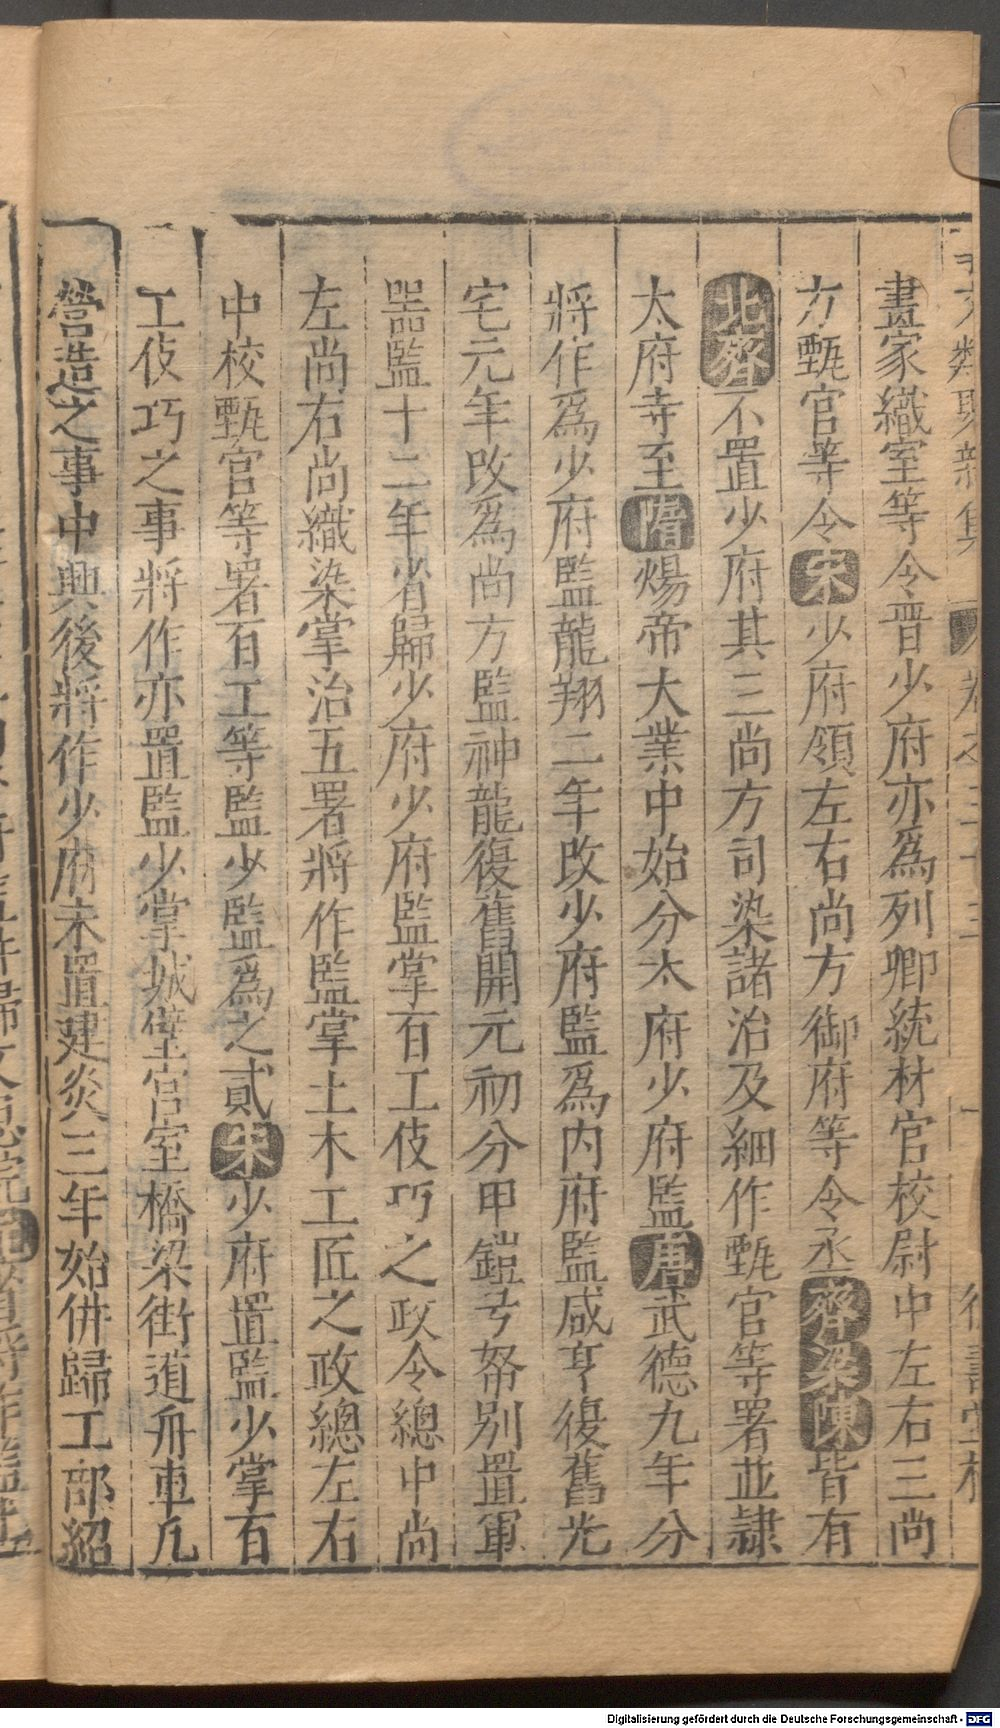 畫家織室等令晉少府亦爲列卿統材官校尉中左右三尚
方甄官等令宋少府領左右尚方御府等令丞齊梁陳皆有
北齊不置少府其三尚方司染諸冶及細作甄官等署並隷
太府寺至隋煬帝大業中始分太府少府監唐武德九年分
將作爲少府監龍翔二年改少府監爲内府監咸亨復舊光
宅元年改爲尚方監神龍復舊開元初分甲鎧弓弩別置軍
器監十二年省歸少府少府監掌百工伎巧之政令總中尚
左尚右尚織染掌冶五署將作監掌土木工匠之政總左右
中校甄官等署百工等監少監爲之貳宋少府置監少掌百
工伎巧之事將作亦置監少掌城壁宫室橋梁街道舟車凡
營造之事中興後將作少府未置建炎三年始併歸工部紹
Digitalisierung gefördert durch die Deutsche Forschungsgemeinschaft - DFG